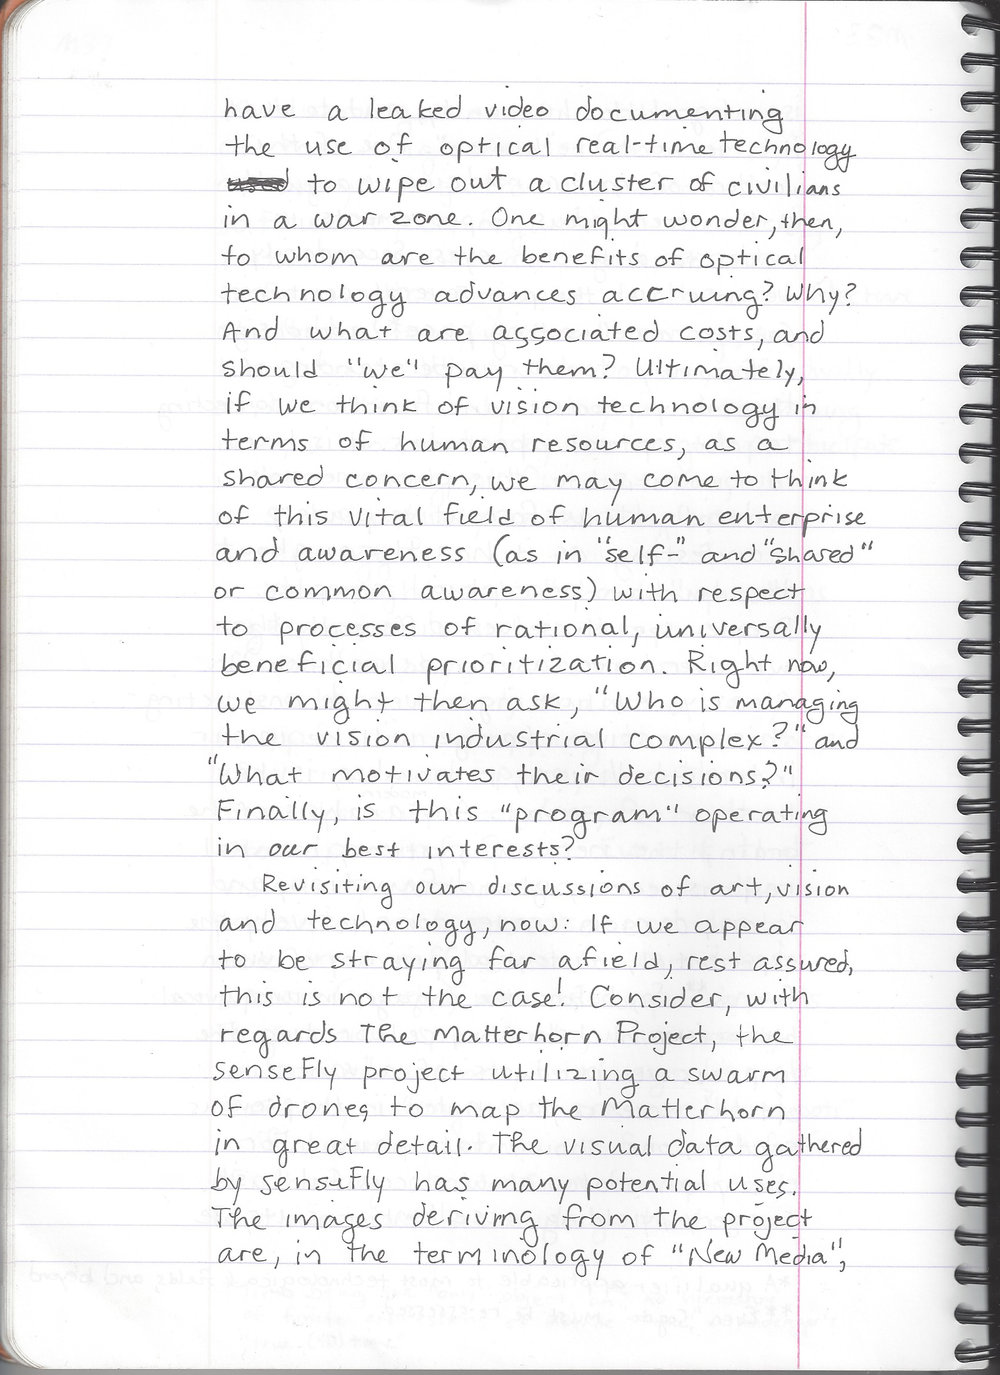 have a leaked video documenting
the use of optical real-time technology
used to wipe out a cluster of civilians
in a war zone. One might wonder, then,
to whom are the benefits of optical
technology advances accruing? Why?
And what are associated costs, and
should "we" pay them? Ultimately,
if we think of vision technology in
terms of human resources, as a
shared concern, we may come to think
of this vital field of human enterprise
and awareness (as in "self-" and "shared"
or common awareness) with respect
to processes of rational, universally
beneficial prioritization. Right now,
we might then ask, "Who is managing
the vision industrial complex?" and
"What motivates their decisions?"
Finally, is this "program" operating
in our best interests?
Revisiting our discussions of art, vision
and technology, now: If we appear
to be straying far afield, rest assured,
this is not the case! Consider, with
regards The Matterhorn Project, the
senseFly project utilizing a swarm
of drones to map the Matterhorn
in great detail. The visual data gathered
by senseFly has many potential uses.
The images deriving from the project
are, in the terminology of "New Media",